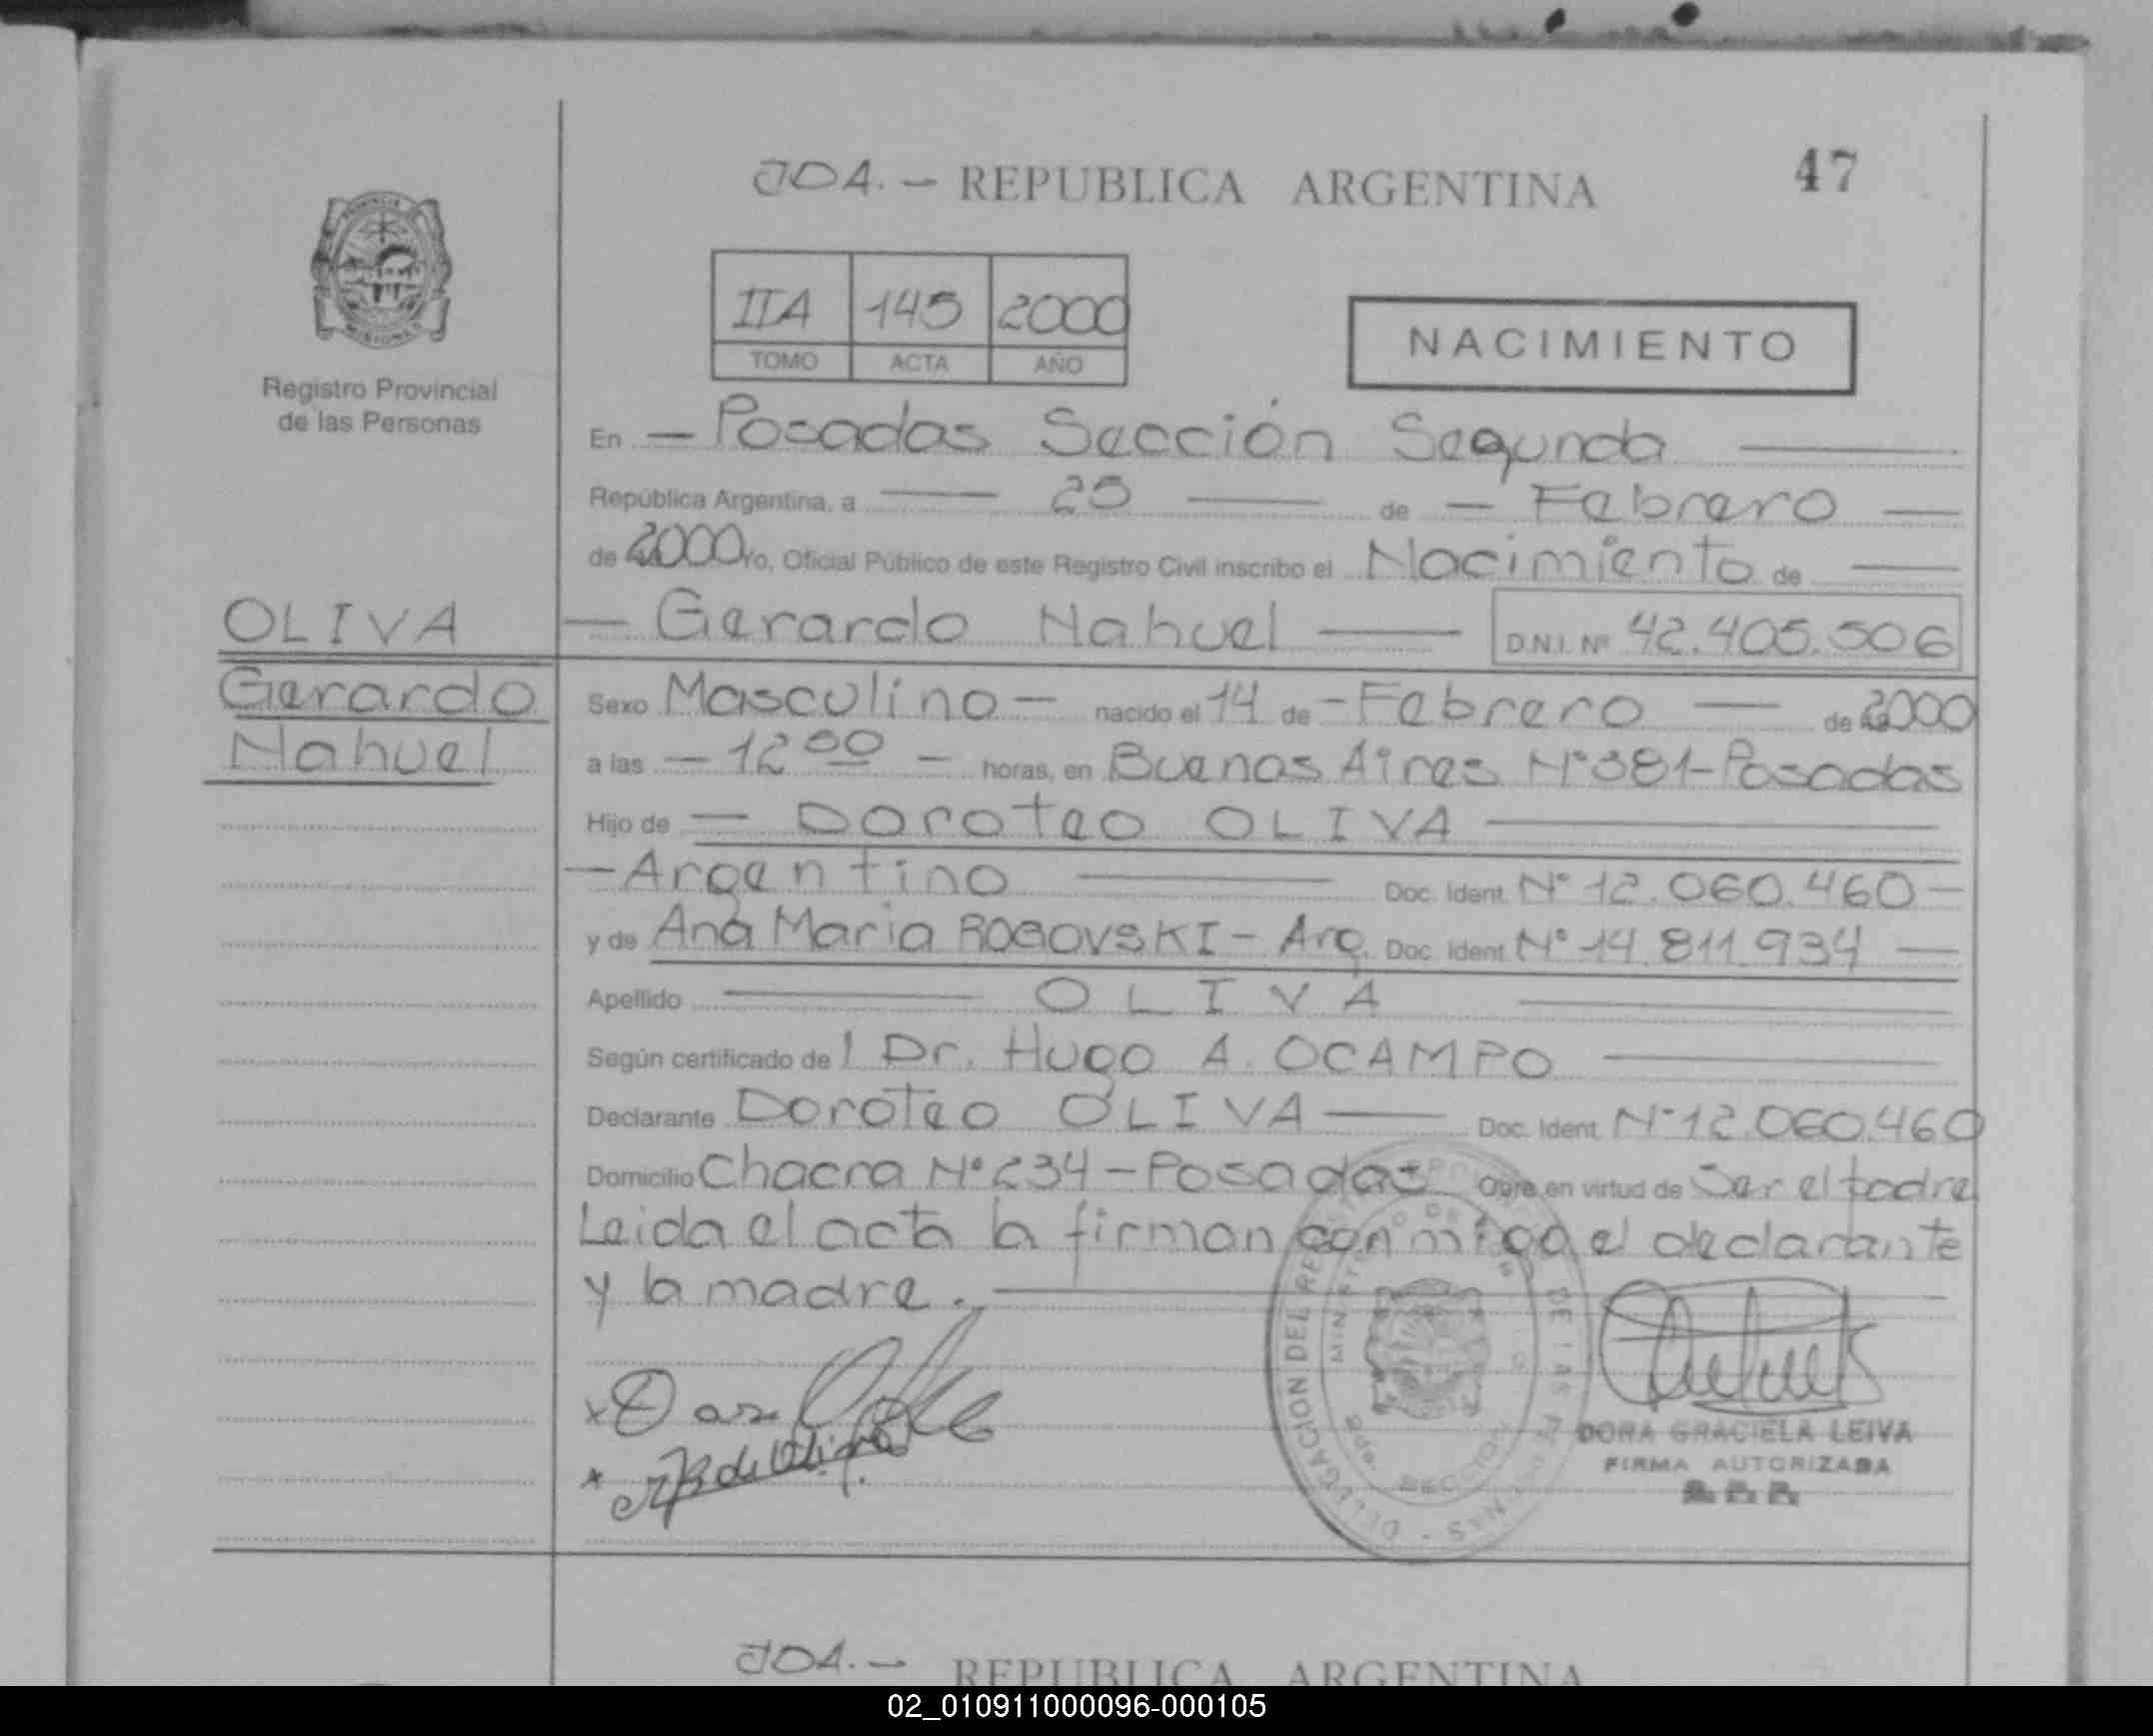 JOA. - REPUBLICA ARGENTINA
47
IIA 145 2000
TOMO ACTA AÑO
NACIMIENTO
Registro Provincial
de las Personas
En - Posadas Sección Segunda
República Argentina, a 25 de - Febrero
de 2000 Yo, Oficial Público de este Registro Civil inscribo el Nacimiento de
OLIVA
Gerardo
Nahuel
- Gerardo Nahuel D.N.I. Nº 42.405.506
Sexo Masculino - nacido el 14 de - Febrero de 2000
a las - 12 00 - horas, en Buenos Aires Nº 381-Posadas
Hijo de - Doroteo OLIVA
- Argentino Doc. Ident. Nº 12.060.460 -
y de Ana Maria ROGOVSKI - Arg. Doc. Ident. Nº 14.811.934
Apellido OLIVA
Según certificado de Dr. Hugo A. OCAMPO
Declarante Doroteo OLIVA Doc. Ident. Nº 12.060.460
Domicilio Chacra Nº 234 - Posadas Obra en virtud de Ser el padre
Leida el acta la firman conmigo el declarante
y la madre.
DORA GRACIELA LEIVA
FIRMA AUTORIZADA
JOA. - REPUBLICA ARGENTINA
02_010911000096-000105